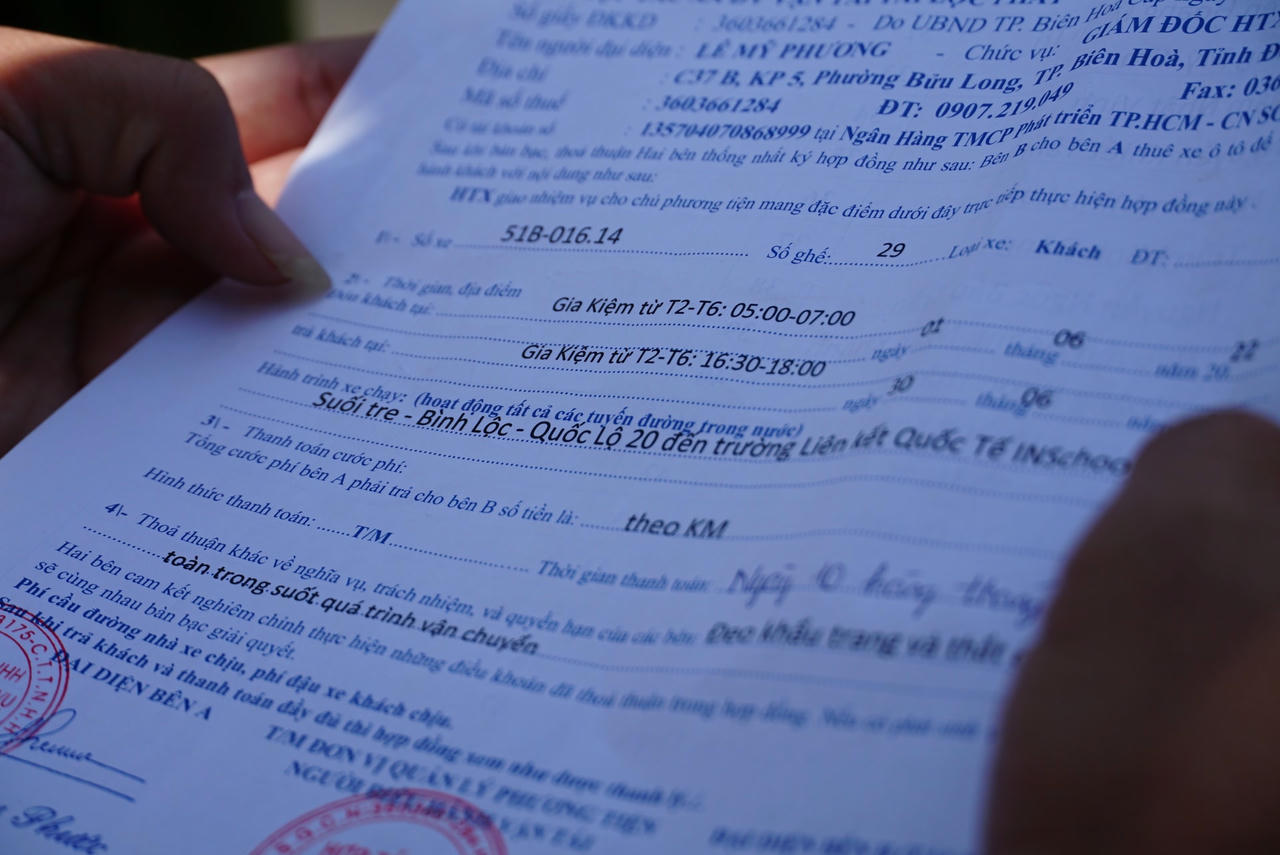 Số giấy ĐKKD : 3603661284 - Do UBND TP. Biên Hoà Cấp ngày
Tên người đại diện : LÊ MỸ PHƯƠNG - Chức vụ: GIÁM ĐỐC HTX
Địa chỉ : C37 B, KP 5, Phường Bửu Long, TP. Biên Hoà, Tỉnh Đ
Mã số thuế : 3603661284 ĐT: 0907.219.049 Fax: 036
Có tài khoản số : 135704070868999 tại Ngân Hàng TMCP Phát triển TP.HCM - CN SO
Sau khi bàn bạc, thoả thuận Hai bên thống nhất ký hợp đồng như sau: Bên B cho bên A thuê xe ô tô để
hành khách với nội dung như sau:
HTX giao nhiệm vụ cho chủ phương tiện mang đặc điểm dưới đây trực tiếp thực hiện hợp đồng này .
1\- Số xe 51B-016.14 Số ghế: 29 Loại xe: Khách ĐT:
2\- Thời gian, địa điểm
Đón khách tại: Gia Kiệm từ T2-T6: 05:00-07:00 ngày 01 tháng 06 năm 20 22
trả khách tại: Gia Kiệm từ T2-T6: 16:30-18:00 ngày 30 tháng 06 năm
Hành trình xe chạy: (hoạt động tất cả các tuyến đường trong nước)
Suối tre - Bình Lộc - Quốc Lộ 20 đến trường Liên kết Quốc Tế INSchoo
3\- Thanh toán cước phí:
Tổng cước phí bên A phải trả cho bên B số tiền là: theo KM
Hình thức thanh toán: T/M Thời gian thanh toán: Ngày 10 hàng tháng
4\- Thoả thuận khác về nghĩa vụ, trách nhiệm, và quyền hạn của các bên: Đeo khẩu trang và thắt
toàn trong suốt quá trình vận chuyển
Hai bên cam kết nghiêm chỉnh thực hiện những điều khoản đã thoả thuận trong hợp đồng. Nếu có phát sinh
sẽ cùng nhau bàn bạc giải quyết.
Phí cầu đường nhà xe chịu, phí đậu xe khách chịu.
Sau khi trả khách và thanh toán đầy đủ thì hợp đồng xem như được thanh lý.
ĐẠI DIỆN BÊN A
T/M ĐƠN VỊ QUẢN LÝ PHƯƠNG TIỆN
Phước